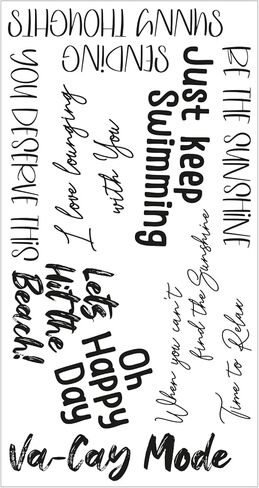 SENDING
SUNNY THOUGHTS
YOU DESERVE THIS
I love lounging
with You
Just keep
Swimming
BE THE SUNSHINE
When you can't
find the Sunshine
Time to Relax
Let's
Hit the
Beach!
Oh
Happy
Day
Va-Cay Mode